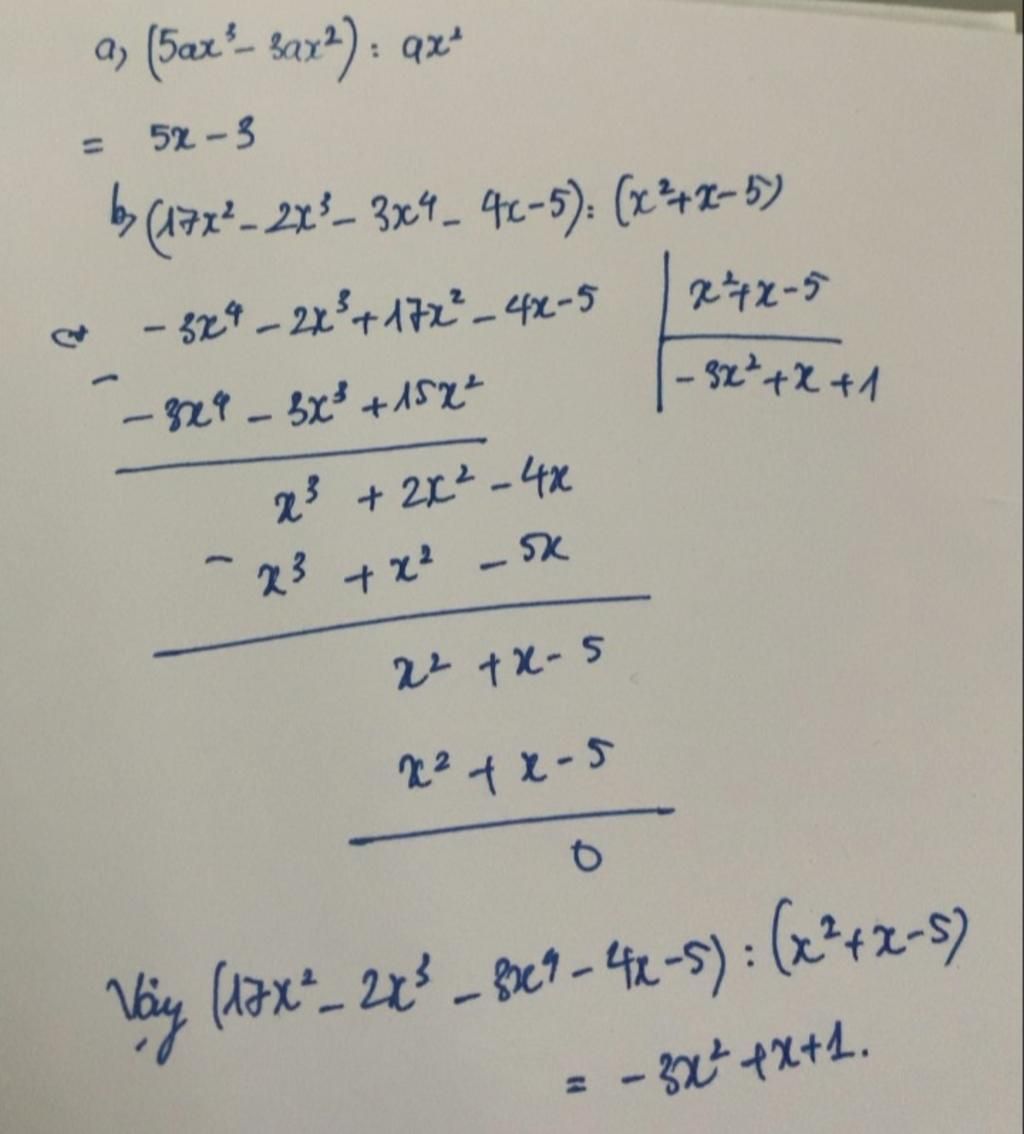 a, (5ax³ - 3ax²) : ax²
= 5x - 3
b, (17x² - 2x³ - 3x⁴ - 4x - 5) : (x² + x - 5)
- 3x⁴ - 2x³ + 17x² - 4x - 5 | x² + x - 5
- - 3x⁴ - 3x³ + 15x² | - 3x² + x + 1
x³ + 2x² - 4x
- x³ + x² - 5x
x² + x - 5
x² + x - 5
0
Vậy (17x² - 2x³ - 3x⁴ - 4x - 5) : (x² + x - 5)
= - 3x² + x + 1.